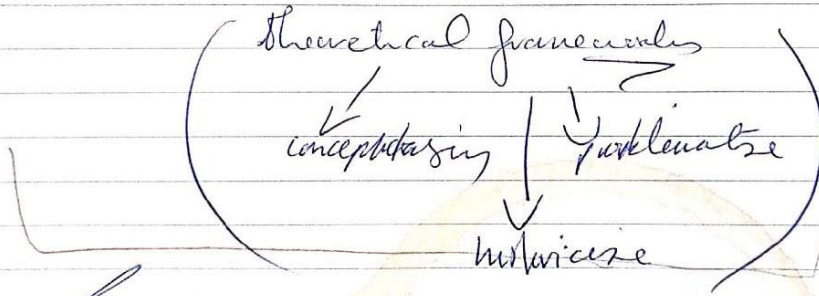 theoretical frameworks
conceptualising problematise
historicise